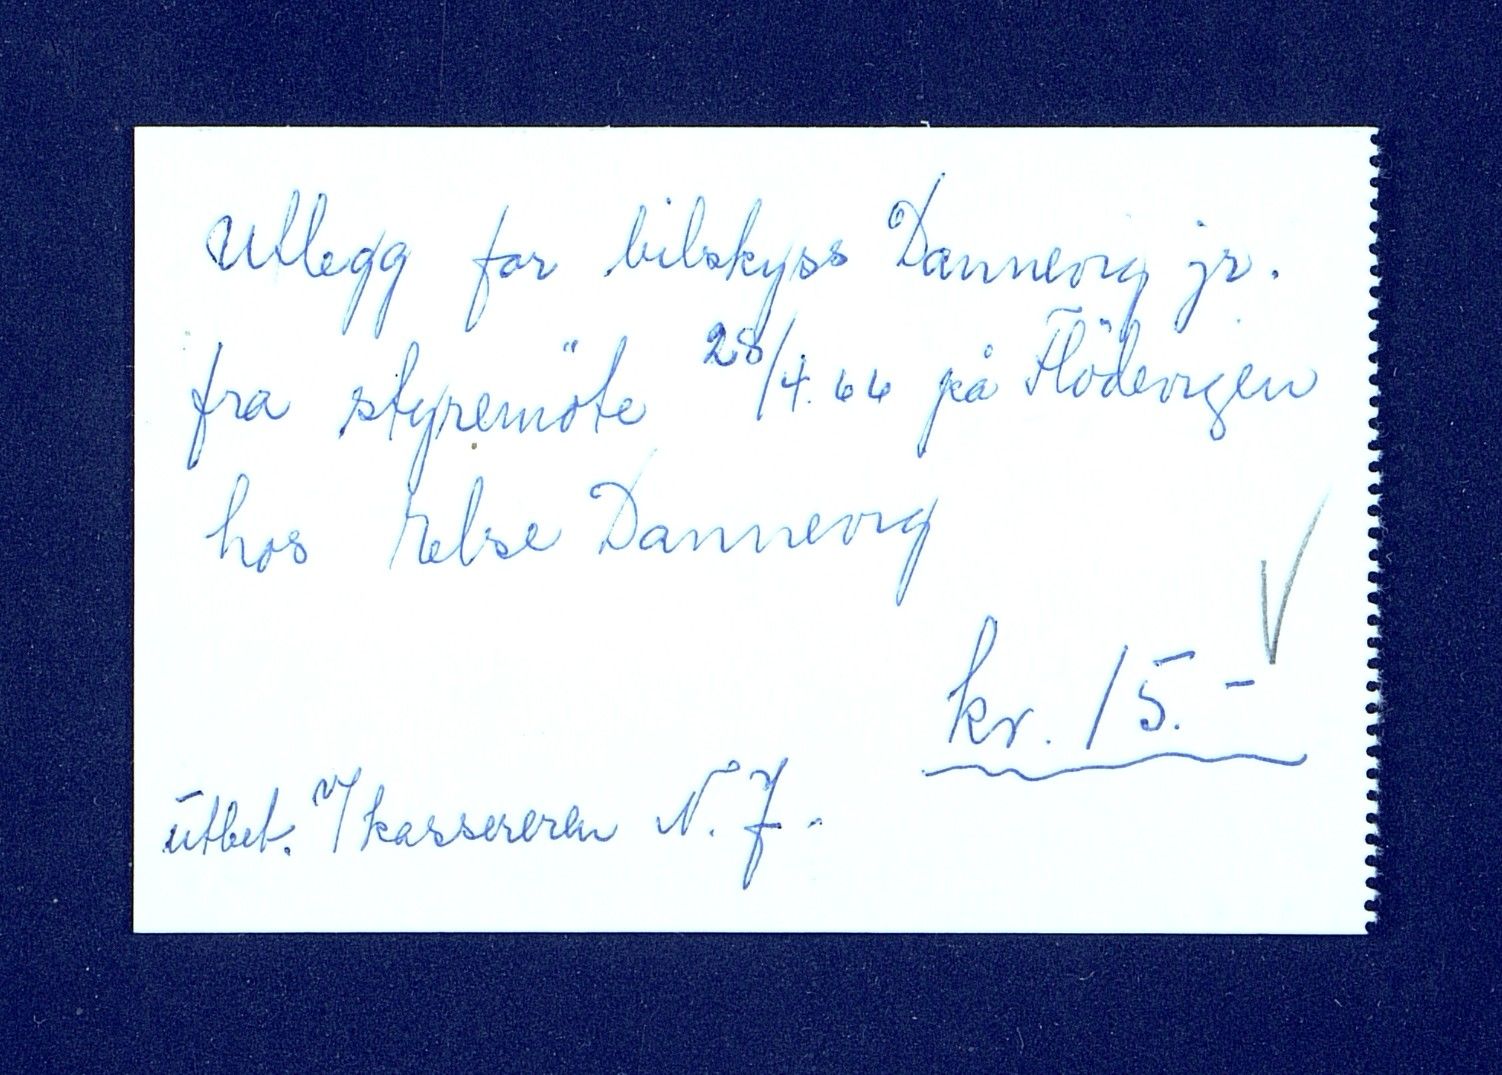 Utlegg for bilskyss Dannevig jr.
fra styremöte 28/4.66 på Flödevigen
hos Else Dannevig
kr. 15.-
Utbet. v/kassereren N. J.